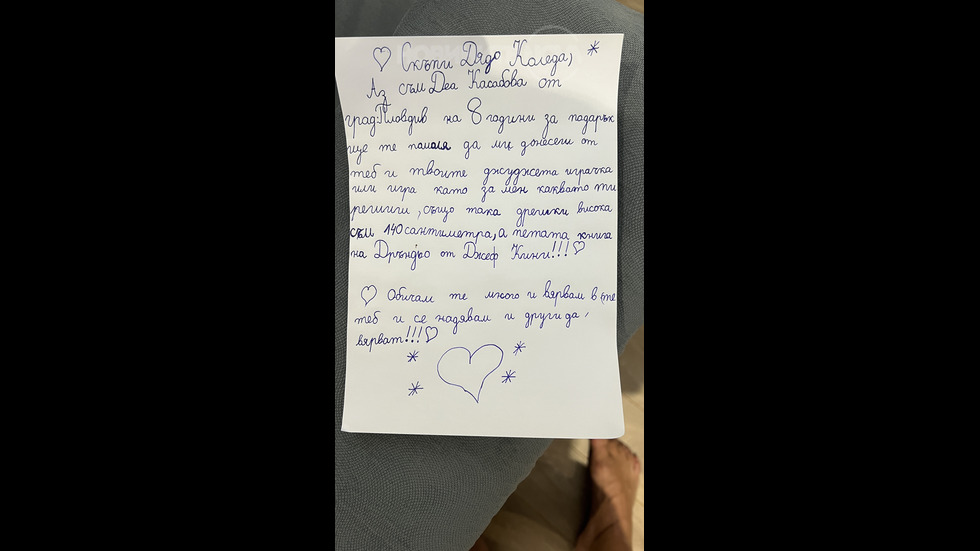 Скъпи Дядо Коледа,
Аз съм Деа Касабова от
град Пловдив на 8 години за подарък
ще те помоля да ми донесеш от
теб и твоите джуджета играчка
или игра като за мен каквато ти
решиш, също така дрешки висока
съм 140 сантиметра, а петата книга
на Дръндьо от Джеф Кини!!!
Обичам те много и вярвам в
теб и се надявам и други да
вярват!!!